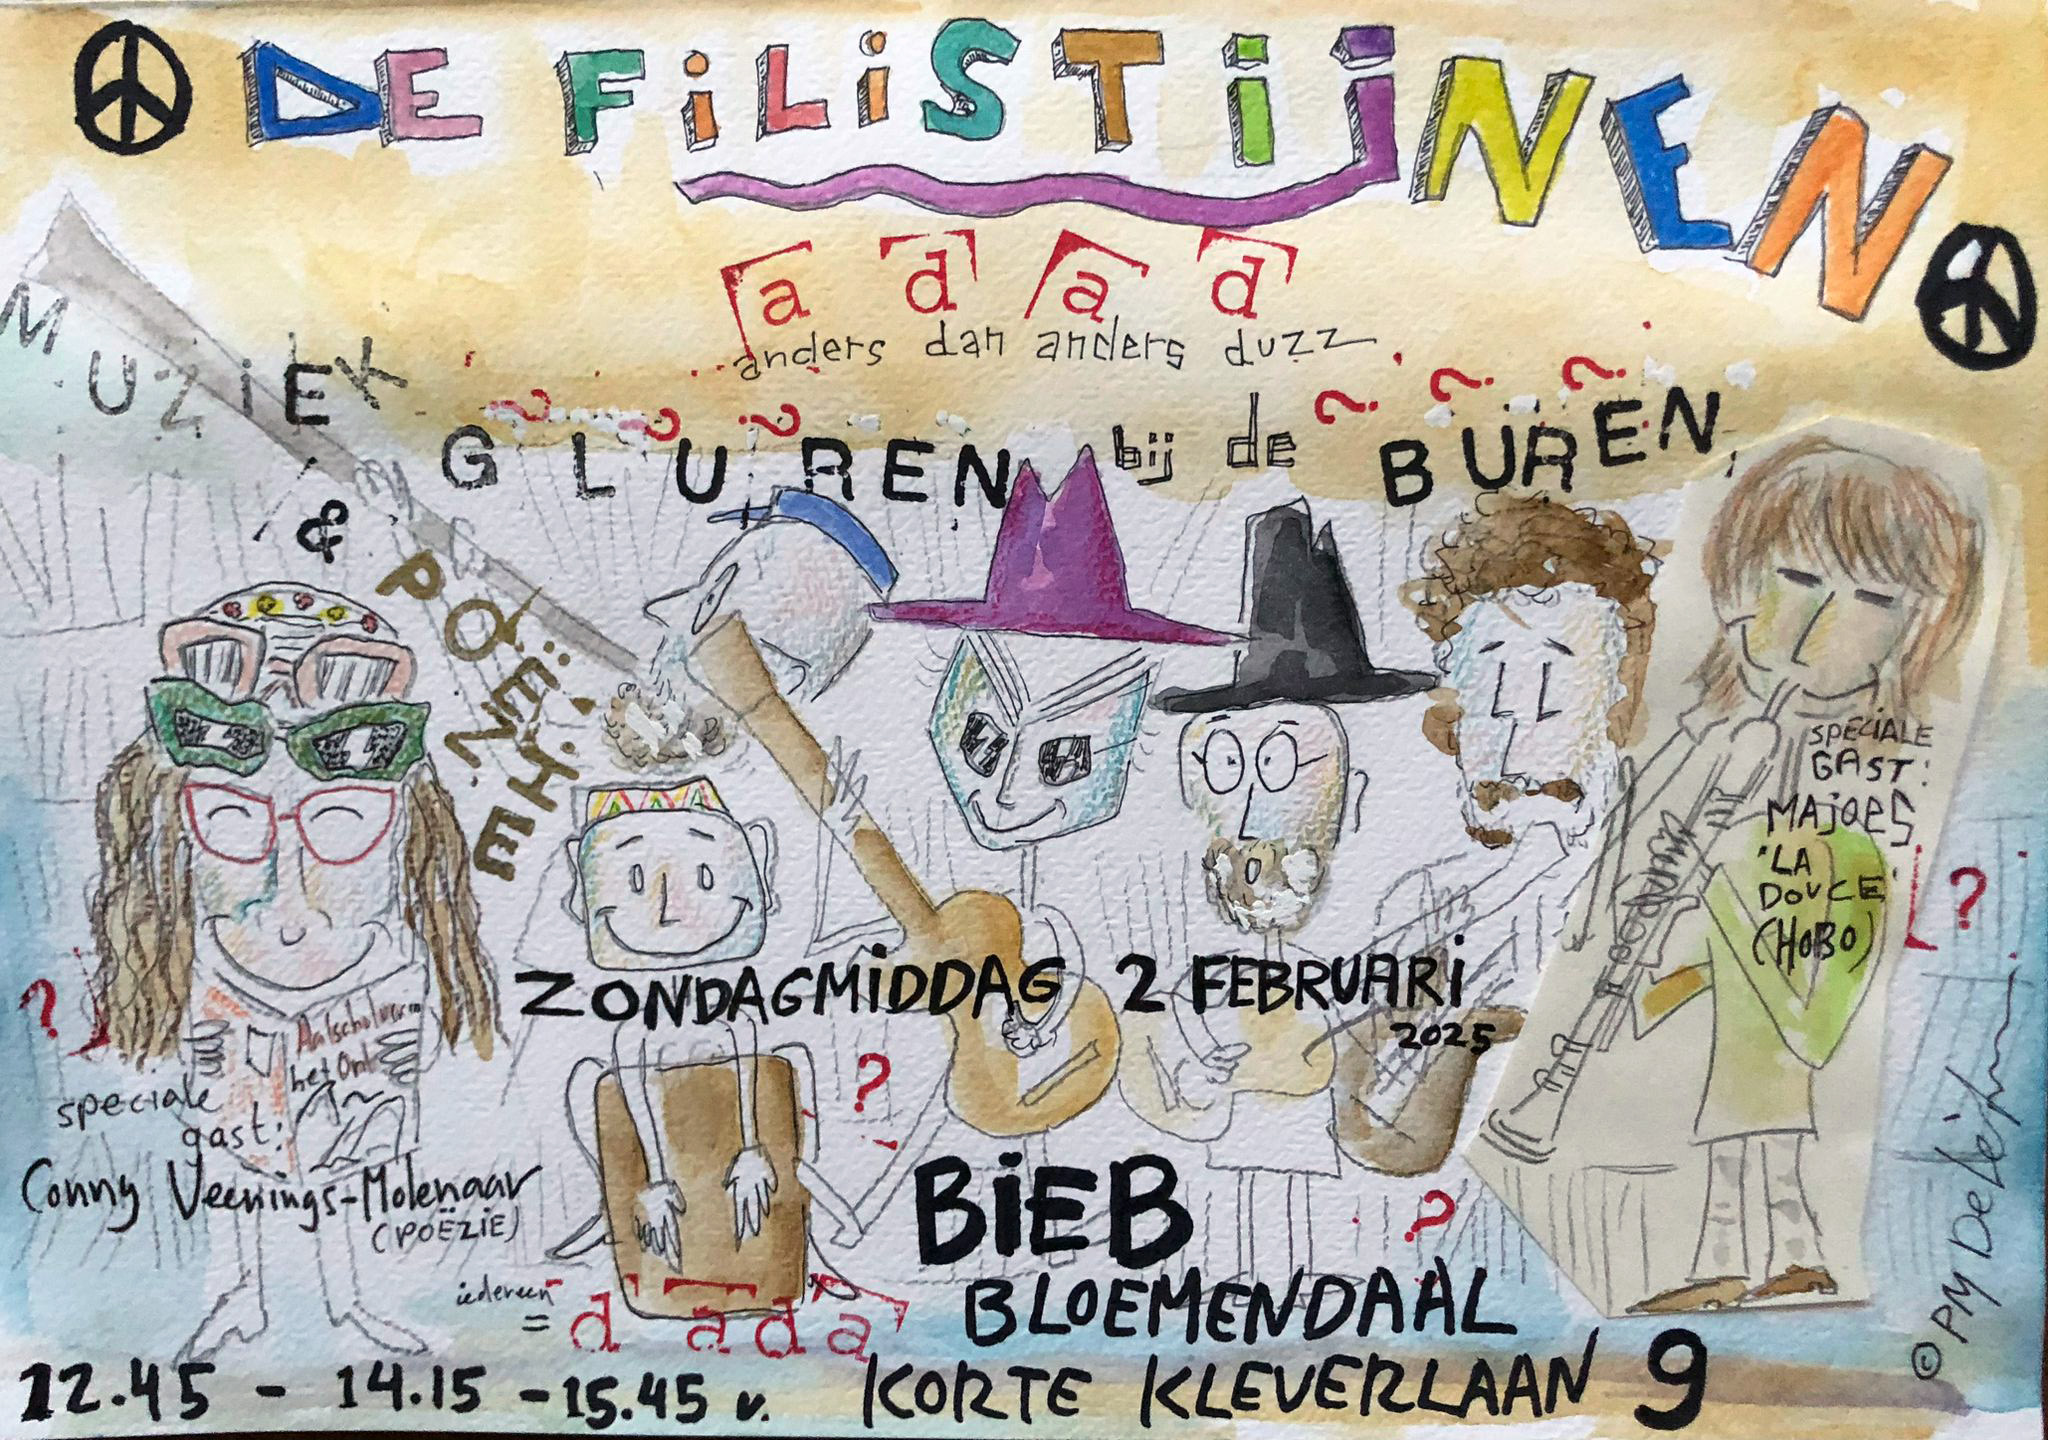 DE FiLiSTijNEN
a d a d
anders dan anders duzz
MUZiEK
& POËZiE
GLUREN bij de BUREN
? ? ? ? ? ?
SPECIALE
GAST:
MAJOES
'LA
DOUCE'
(HOBO)
?
?
ZONDAGMiDDAG 2 FEBRUARi
2025
Aalscholver
speciale
gast:
Conny Veenings-Molenaar
(POËZIE)
?
?
BiEB
BLOEMENDAAL
iedereen
= d a d a
12.45 - 14.15 - 15.45 v. KORTE KLEVERLAAN 9